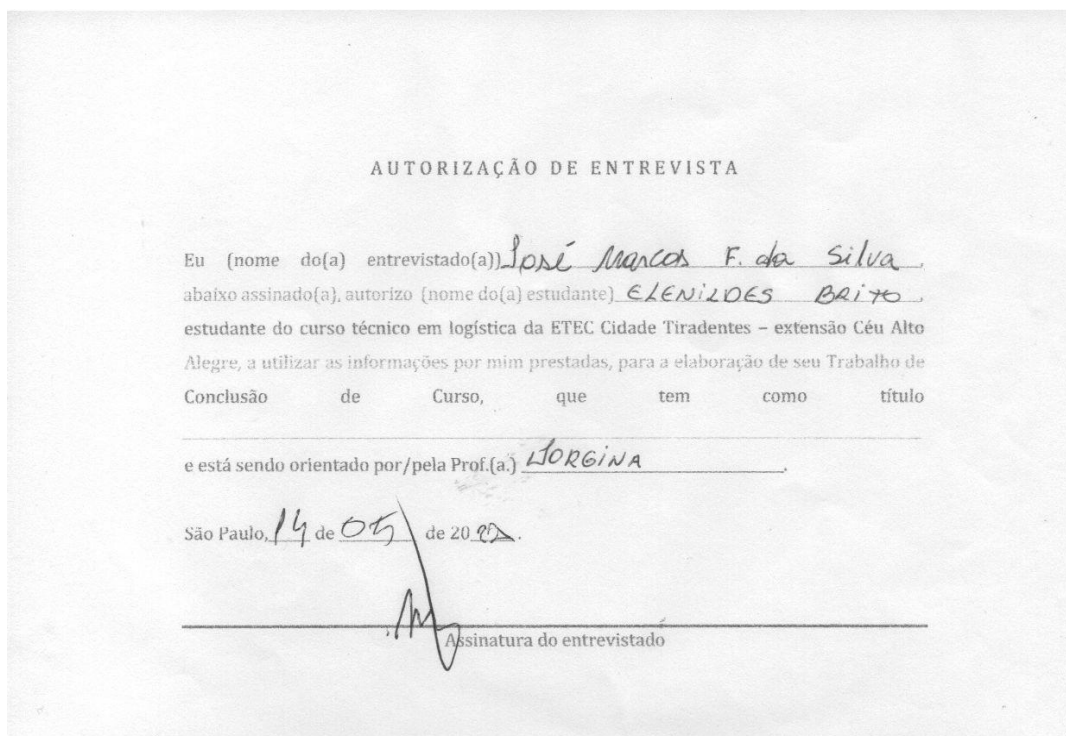 AUTORIZAÇÃO DE ENTREVISTA
Eu (nome do(a) entrevistado(a)) José Marcos F. da Silva,
abaixo assinado(a), autorizo (nome do(a) estudante) ELENILDES BRITO,
estudante do curso técnico em logística da ETEC Cidade Tiradentes – extensão Céu Alto
Alegre, a utilizar as informações por mim prestadas, para a elaboração de seu Trabalho de
Conclusão de Curso, que tem como título
e está sendo orientado por/pela Prof.(a.) JORGINA.
São Paulo, 14 de 05 de 20.
Assinatura do entrevistado